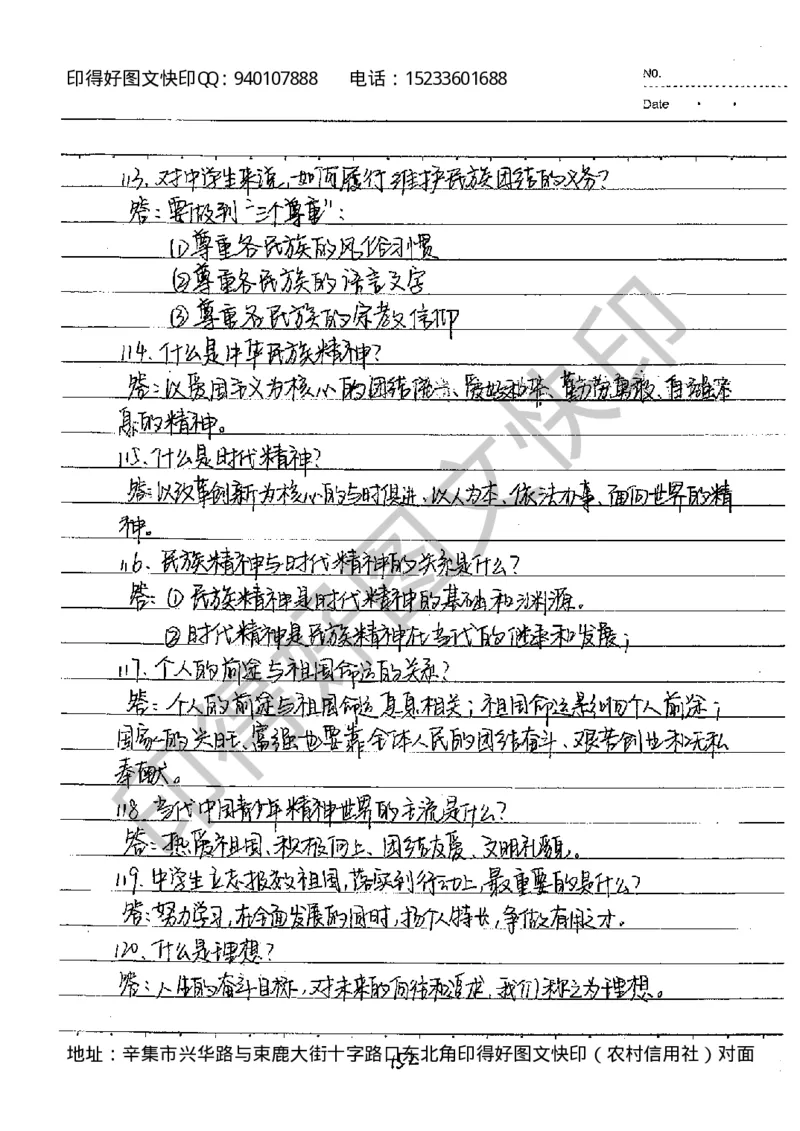 印得好图文快印QQ：940107888 电话：15233601688
No.
Date
113、对中学生来说，如何履行维护民族团结的义务？
答：要做到“三个尊重”：
①尊重各民族的风俗习惯
②尊重各民族的语言文字
③尊重各民族的宗教信仰
114、什么是中华民族精神？
答：以爱国主义为核心的团结统一、爱好和平、勤劳勇敢、自强不
息的精神。
115、什么是时代精神？
答：以改革创新为核心的与时俱进、以人为本、依法办事、面向世界的精
神。
116、民族精神与时代精神的关系是什么？
答：①民族精神是时代精神的基础和渊源。
②时代精神是民族精神在当代的继承和发展；
117、个人的前途与祖国命运的关系？
答：个人的前途与祖国命运息息相关；祖国命运影响个人前途；
国家的兴旺、富强也要靠全体人民的团结奋斗、艰苦创业和无私
奉献。
118、当代中国青少年精神世界的主流是什么？
答：热爱祖国、积极向上、团结友爱、文明礼貌。
119、中学生立志报效祖国，落实到行动上，最重要的是什么？
答：努力学习，在全面发展的同时，扬个人特长，争做有用之才。
120、什么是理想？
答：人生的奋斗目标，对未来的向往和追求，我们称之为理想。
地址：辛集市兴华路与束鹿大街十字路口东北角印得好图文快印（农村信用社）对面
印得好图文快印